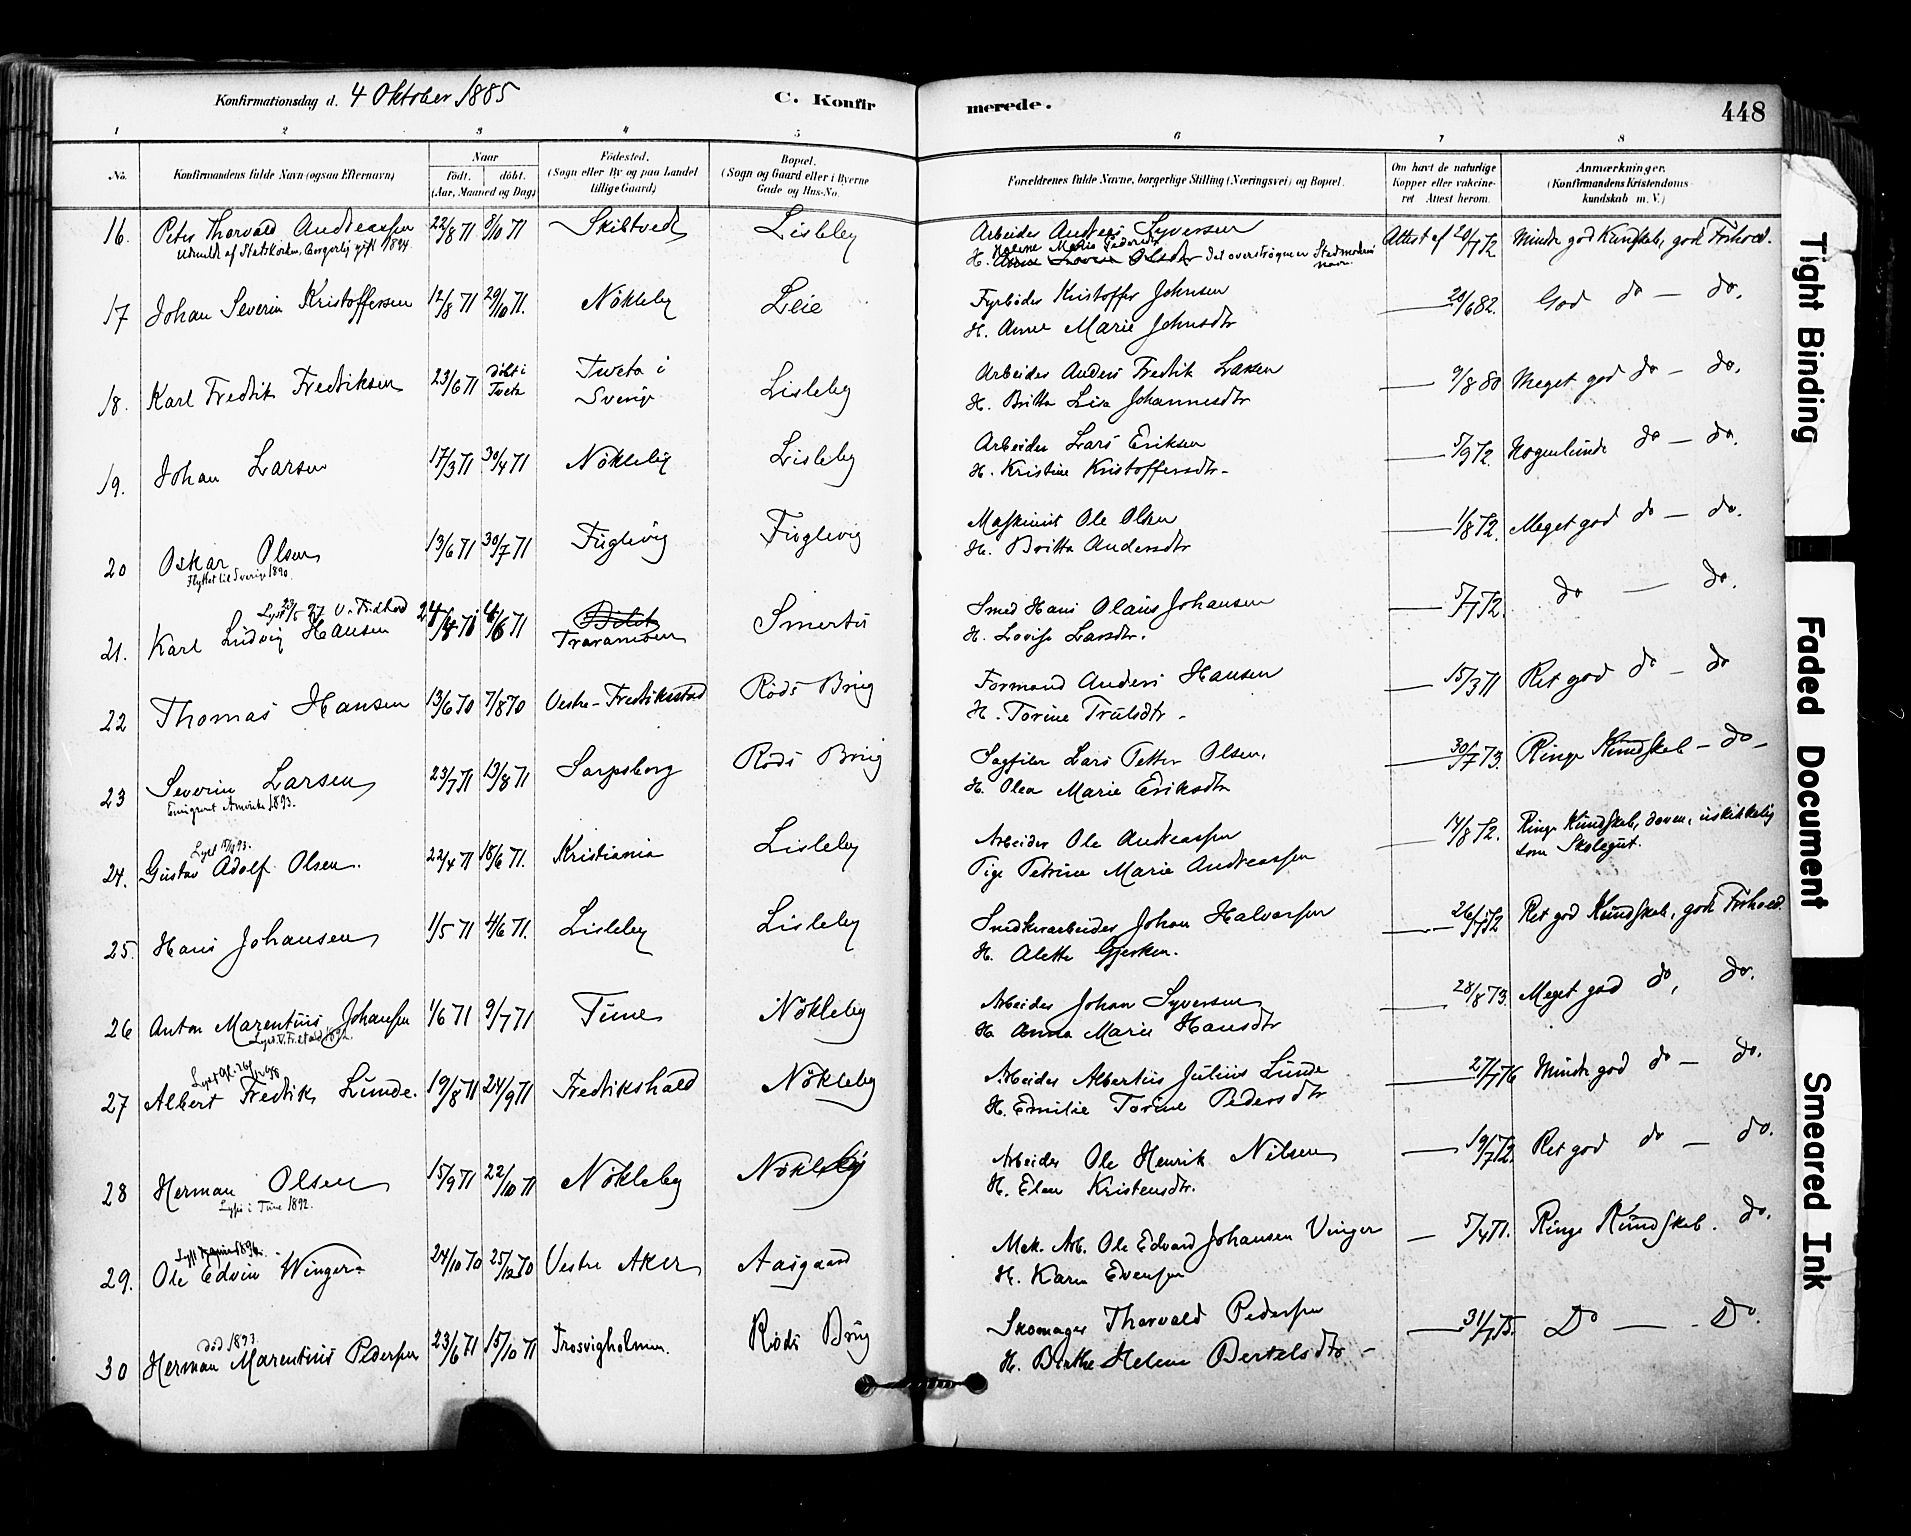 Konfirmationsdag d. 4 Oktober 1885 C. Konfirmerede. 448
1 2 3 4 5 6 7 8
No. Konfirmandens fulde Navn (ogsaa Efternavn) Naar født. døbt. (Aar, Maaned og Dag) Fødested. (Sogn eller By og paa Landet tillige Gaard) Bopæl. (Sogn og Gaard eller i Byerne Gade og Hus-No. Forældrenes fulde Navne, borgerlige Stilling (Næringsvei) og Bopæl. Om havt de naturlige Kopper eller vakcineret Attest herom. Anmærkninger. (Konfirmandens Kristendomskundskab m. V.)
16. Peter Thorvald Andreassen 22/8 71 8/10 71 Skibtvedt Lisleby Arbeider Andreas Syversen Attest af 20/7 72 Mindre god Kundskab, god Forhold.
Udmeldt af Statskirken, borgerlig gift 1894. H. Anne Lovise Olsdtr det overstrøgne er Stedmoderens navn
17 Johan Severin Kristoffersen 12/8 71 29/10 71. Nökleby Leie Fyrbøder Kristoffer Johnsen 20/6 82. God do — do.
H. Anne Marie Johnsdtr
18. Karl Fredrik Fredriksen 23/6 71 døbt i Tveta Tveta i Sverige Lisleby Arbeider Anders Fredrik Larsen 9/8 80 Meget god do — do.
H. Britta Lisa Johannesdtr
19. Johan Larsen 17/3 71 30/4 71 Nökleby Lisleby Arbeider Lars Eriksen 5/9 72. Nogenlunde do — do.
H. Kristine Kristoffersdtr.
20 Oskar Olsen 13/6 71 30/7 71 Fuglevig Fuglevig Maskinist Ole Olsen 1/8 72. Meget god do — do.
Flyttet til Sverige 1890. H. Britta Andersdtr
21. Karl Ludvig Hansen 24/4 71 4/6 71 Traranden Smertu Smed Hans Olaus Johansen 5/7 72. do — do.
H. Lovise Larsdtr.
22 Thomas Hansen 13/6 70 7/8 70 Vestre-Fredrikstad Röds Brug Formand Anders Hansen 15/3 71 Ret god do — do
H. Torine Trulsdtr.
23 Severin Larsen 23/7 71 13/8 71 Sarpsborg Röds Brug Sagfiler Lars Petter Olsen. 30/7 73. Ringe Kundskab - do -
Emigrert Amerika 1893. H. Olea Marie Eriksdtr
24. Gustav Adolf Olsen. 22/4 71 18/6 71. Kristiania Lisleby Arbeider Ole Andreassen 14/8 72. Ringe Kundskab, doven, uskikkelig som Skolegut.
Pige Petrine Marie Andreassen
25. Hans Johansen 1/5 71 4/6 71. Lisleby Lisleby Snedkerarbeider Johan Halvorsen 26/7 72 Ret god Kundskab, god Forhold.
H. Alette Gjerken.
26 Anton Marentius Johansen 1/6 71 9/7 71 Tune Nökleby Arbeider Johan Syversen 28/8 73. Meget god do, do.
H. Anna Marie Hansdtr
27 Albert Fredrik Lunde. 19/8 71 24/9 71 Fredrikshald Nökleby Arbeider Albertius Julius Lunde 27/7 76 Mindre god do — do.
H. Emilie Torine Pedersdtr
28 Herman Olsen 15/9 71 22/10 71 Nökleby Nökleby Arbeider Ole Henrik Nilsen 19/7 72. Ret god do — do.
Lyst i Tune 1892. H. Elen Kristensdtr.
29. Ole Edvin Winger 24/10 70 25/12 70 Vestre Aker Aasgaard Mek. Arb. Ole Edvard Johansen Vinger 5/4 71. Ringe Kundskab. do.
H. Karen Evensen
død 1893.
30 Herman Marentius Pedersen 23/6 71 15/10 71 Trosvigholmen. Röds Brug Skomager Thorvald Pedersen 31/7 75. Do — Do.
H. Birthe Helene Bertelsdtr
Tight Binding
Faded Document
Smeared Ink